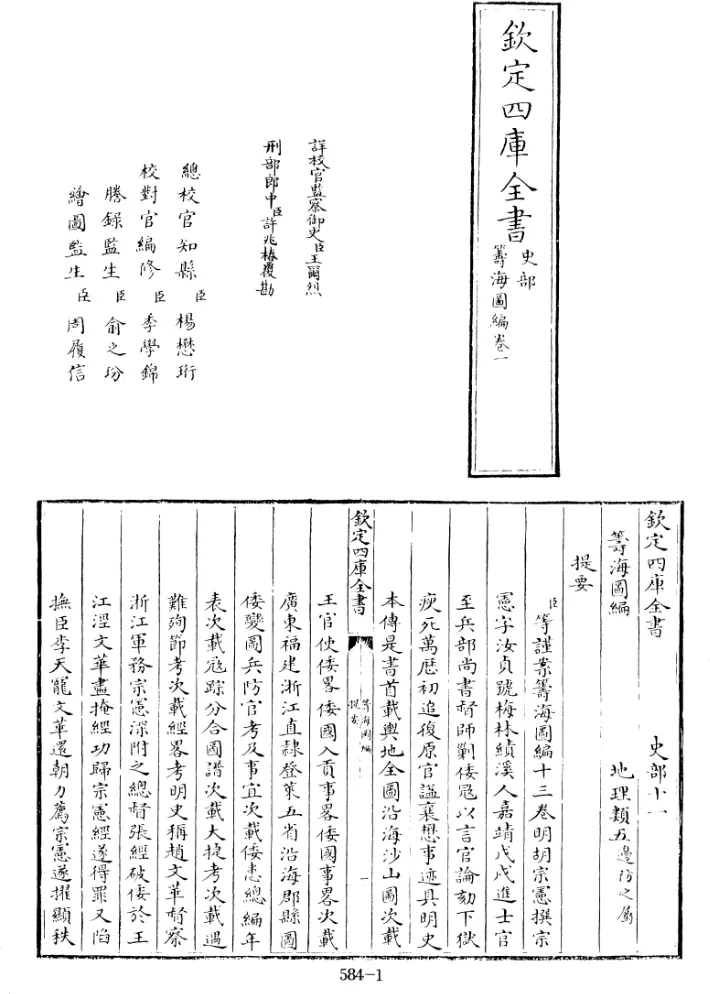 欽定四庫全書
史部
籌海圖編卷一
詳校官監察御史臣王爾烈
刑部郎中臣許兆椿覆勘
總校官知縣臣楊懋珩
校對官編修臣季學錦
謄錄監生臣俞之玢
繪圖監生臣周履信
欽定四庫全書 史部十一
籌海圖編 地理類五邊防之屬
提要
臣等謹案籌海圖編十三卷明胡宗憲撰宗
憲字汝貞號梅林績溪人嘉靖戊戌進士官
至兵部尚書督師剿倭寇以言官論劾下獄
瘐死萬厯初追復原官諡襄懋事迹具明史
本傳是書首載輿地全圖沿海沙山圖次載
欽定四庫全書
籌海圖編
提要
一
王官使倭畧倭國入貢事畧倭國事畧次載
廣東福建浙江直隸登萊五省沿海郡縣圖
倭變圖兵防官考及事宜次載倭患總編年
表次載寇踪分合圖譜次載大捷考次載遇
難殉節考次載經畧考明史稱趙文華督察
浙江軍務宗憲深附之總督張經破倭於王
江涇文華盡掩經功歸宗憲經遂得罪又陷
撫臣李天寵文華還朝力薦宗憲遂擢顯秩
584-1